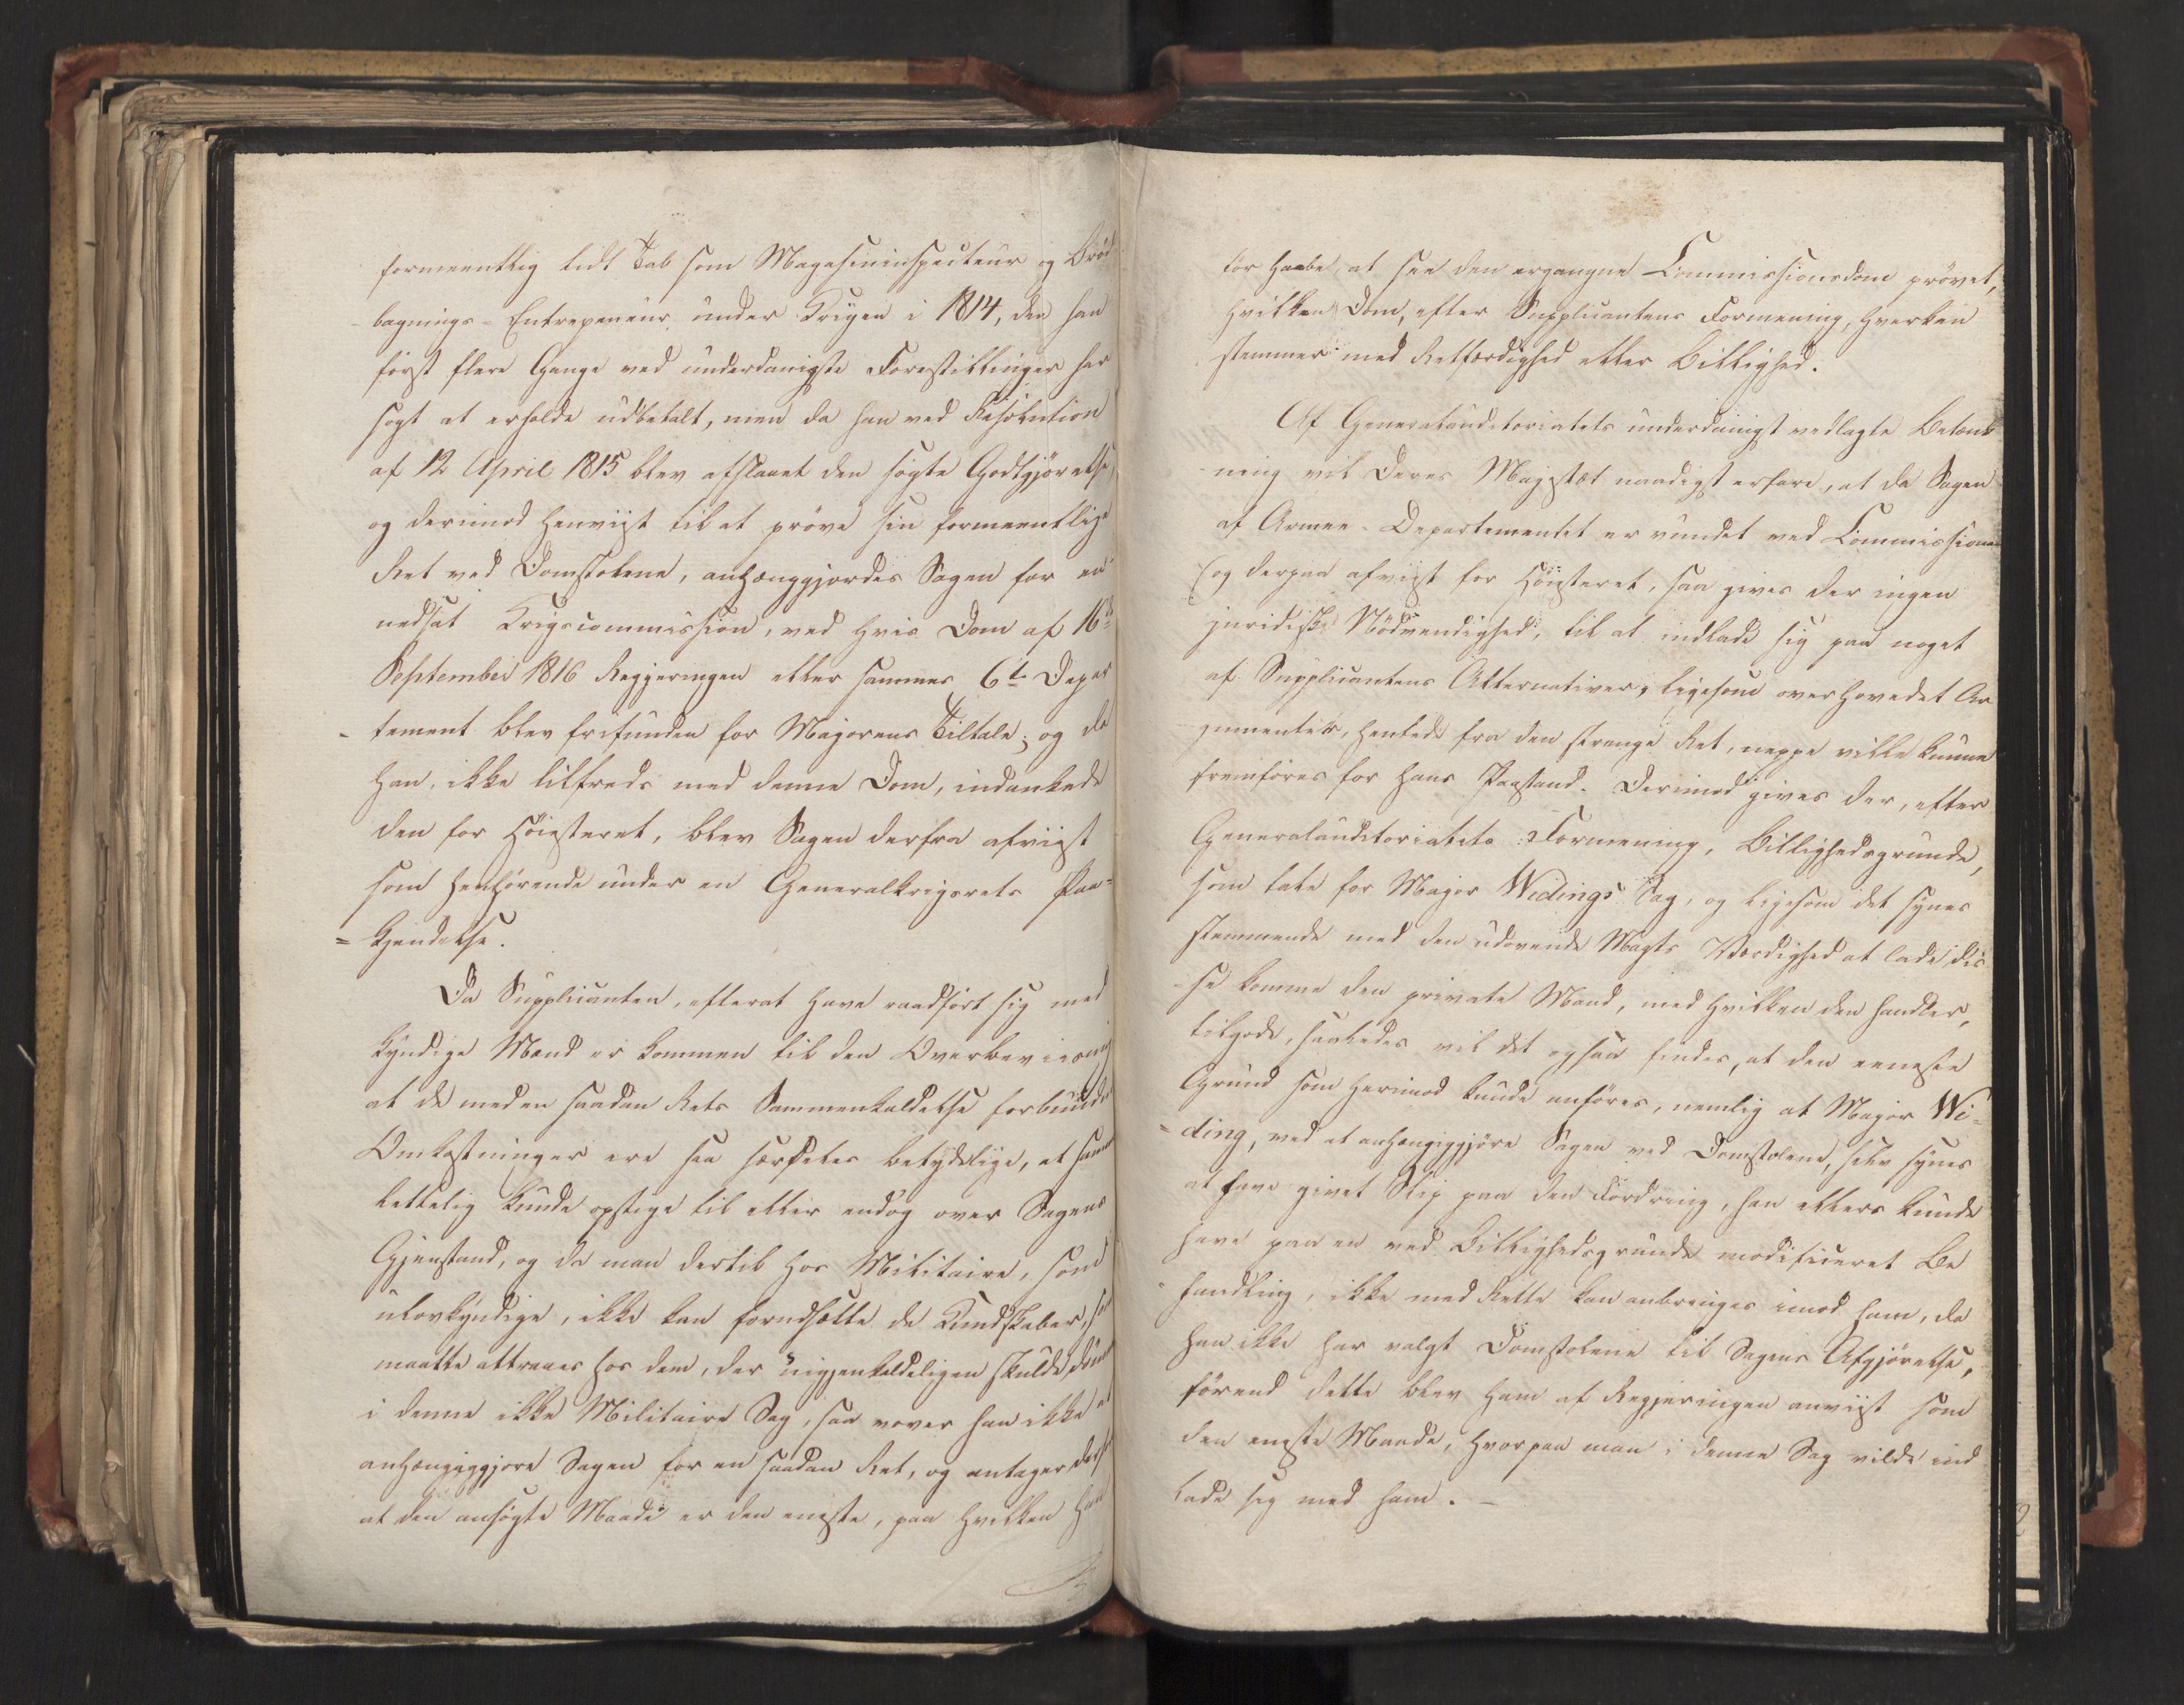 formeentlig lidt Tab som Magasininspecteur og Brød
bagnings-Entrepeneur under Krigen i 1814, den han
først flere Gange ved underdanigste Forestillinger har
søgt at erholde udbetalt, men da han ved Resolution
af 12 April 1815 blev afslaaet den søgte Godtgjørelse,
og derimod henviist til at prøve sin formeentlige
Ret ved Domstolene, anhænggjordes Sagen for en
nedsat Krigscommission, ved hvis Dom af 16de
September 1816 Regjeringen eller sammes 6te Depar
-tement blev frifunden for Majorens Tiltale; og da
han, ikke tilfreds med denne Dom, indankede
den for Høiesteret, blev Sagen derfra afviist
som henhørende under en Generalkrigsrets Paa-
=kjendelse.
Da Supplicanten, efterat have raadført sig med
kyndige Mænd er kommen til den Overbeviisning
at de med en saadan Rets Sammenkaldelse forbundne
Omkostninger ere saa særdeles betydelige, at samme
lettelig kunde opstige til eller endog over Sagens
Gjenstand, og da man dertil hos Militaire, som
ulovkyndige, ikke kan forudsætte de Kundskaber, som
maatte attraaes hos dem, der uigjenkaldeligen skulde dømme
i denne ikke Militaire Sag, saa vover han ikke at
anhængiggjøre Sagen for en saadan Ret, og antager derfor
at den ansøgte Maade er den eneste, paa hvilken han
tør haabe, at see den ergangne Commissionsdom prøvet,
hvilken Dom, efter Supplicantens Formening, hverken
stemmer med Retfærdighed eller Billighed.
Af Generalauditoriatets underdanigst vedlagte Betænk
-ning vil Deres Majestæt naadigst erfare, at da Sagen
af Armee-Departementet er vundet ved Commissionen
(og derpaa afviist for Høiesteret, saa gives der ingen
juridisk Nødvendighed, til at indlade sig paa noget
af Supplicantens Alternativer, ligesom overhovedet Ar
gumenter, hentede fra den strænge Ret, neppe ville kunne
fremføres for hans Paastand. Derimod gives der, efter
Generalauditoriatets Formening, Billighedsgrunde,
som tale for Major Widings Sag, og ligesom det synes
stemmende med den udøvende Magts Værdighed at lade dis
-se komme den private Mand, med hvilken den handler,
tilgode, saaledes vil det ogsaa findes, at den eeneste
Grund som herimod kunde anføres, nemlig at Major Wi-
=ding, ved at anhængiggjøre Sagen ved Domstolene, selv synes
at have givet Slip paa den Fordring, han ellers kunde
have paa en ved Billighedsgrunde modificeret Be
-handling, ikke med Rette kan anbringes imod ham, da
han ikke har valgt Domstolene til Sagens Afgjørelse,
førend dette blev ham af Regjeringen anviist som
den eneste Maade, hvorpaa man i denne Sag vilde ind
lade sig med ham. -